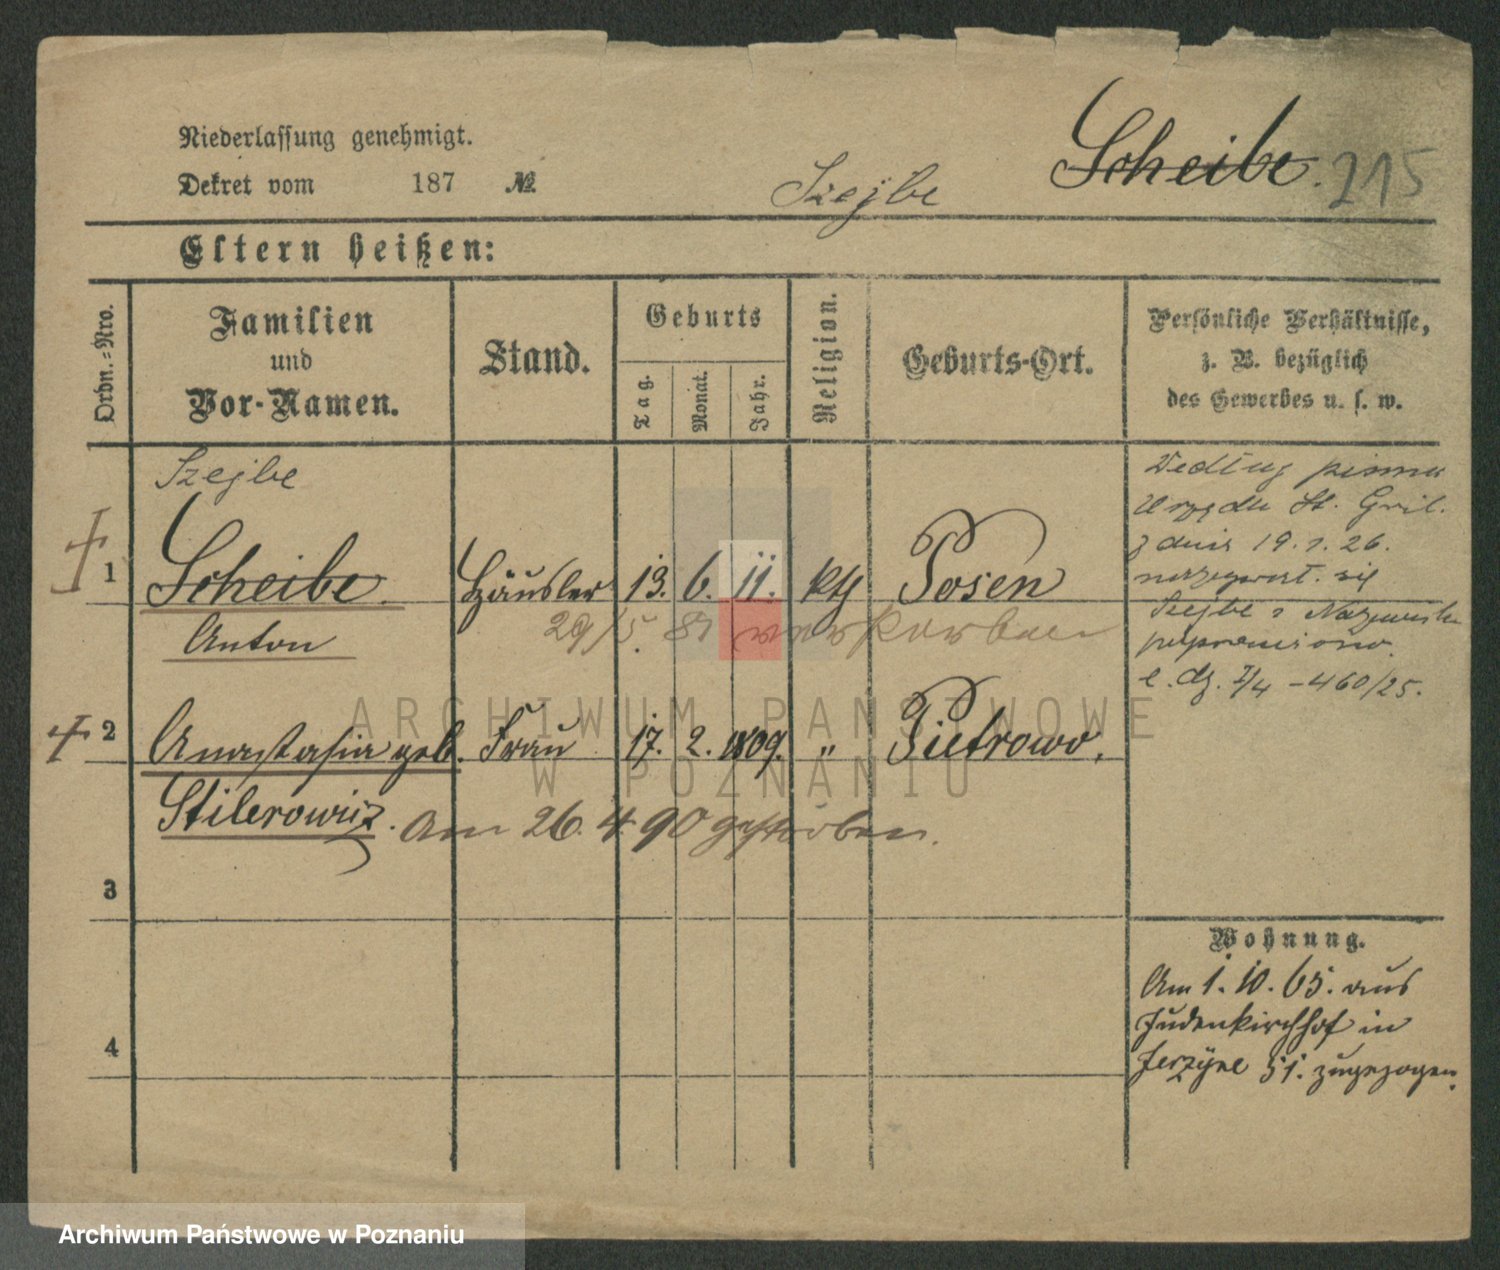 Niederlassung genehmigt.
Dekret vom 187 №
Szejbe
Scheibe. 215
Eltern heißen:
Ordn.=Nro.
Familien
und
Vor-Namen.
Stand.
Geburts
Tag.
Monat.
Jahr.
Religion.
Geburts-Ort.
Persönliche Verhältnisse,
z. B. bezüglich
des Gewerbes u. s. w.
Szejbe
1 Scheibe. Häusler 13. 6. 11. kth Posen
Anton 29/5. verstorben
2 Anastasia geb. Frau 17. 2. 1809. " Pietrowo.
Stilerowicz. Am 26. 4 90 gestorben.
3
4
Według pisma
Urzędu St. Cywil.
z dnia 19. 1. 26.
nazwę się
Szejbe i Nazwisko
poprawiono.
l. dz. I/4 – 460/25.
Wohnung.
Am 1. 10. 65. aus
Judenkirchhof in
Jerzyce 51. zugezogen.
ARCHIWUM PAŃSTWOWE
W POZNANIU
Archiwum Państwowe w Poznaniu